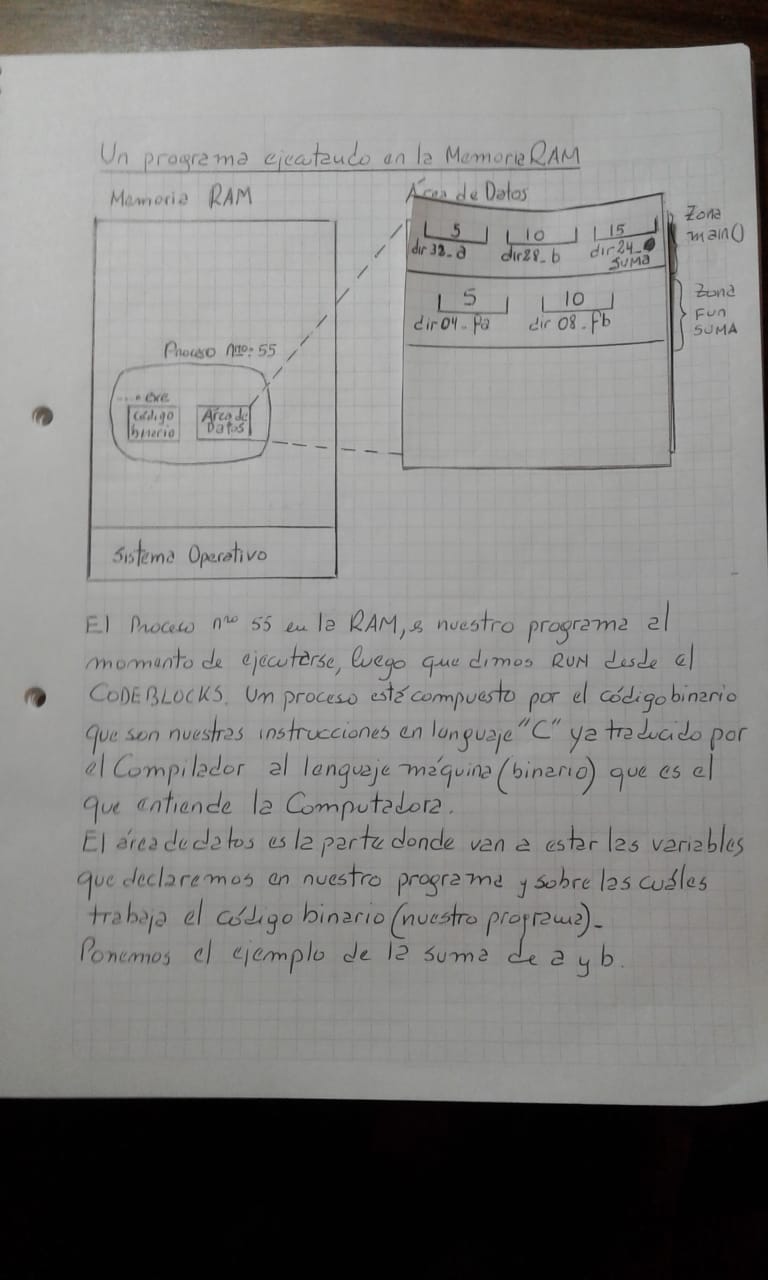 Un programa ejecutando en la Memoria RAM
Memoria RAM
Área de Datos
5 10 15
dir 32_a dir 28_b dir 24_
SUMA
Zona
main()
5 10
dir 04_fa dir 08_fb
Zona
FUN
SUMA
Proceso nro: 55
....exe
Código
binario
Área de
Datos
Sistema Operativo
El Proceso nro 55 en la RAM, es nuestro programa al
momento de ejecutarse, luego que dimos RUN desde el
CODEBLOCKS. Un proceso esté compuesto por el código binario
que son nuestras instrucciones en lenguaje "C" ya traducido por
el Compilador al lenguaje máquina (binario) que es el
que entiende la Computadora.
El área de datos es la parte donde van a estar las variables
que declaremos en nuestro programa y sobre las cuáles
trabaja el código binario (nuestro programa)_
Ponemos el ejemplo de la suma de a y b.